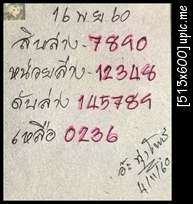 16 พ.ย. 60
สิบล่าง-7890
หน่วยล่าง-12348
ดับล่าง 145789
เหลือ 0236
4/11/60
[513x600]upic.me